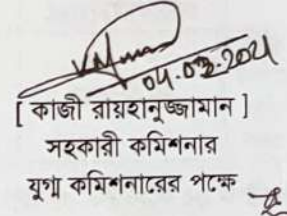 04.03.2021
[ কাজী রায়হানুজ্জামান ]
সহকারী কমিশনার
যুগ্ম কমিশনারের পক্ষে